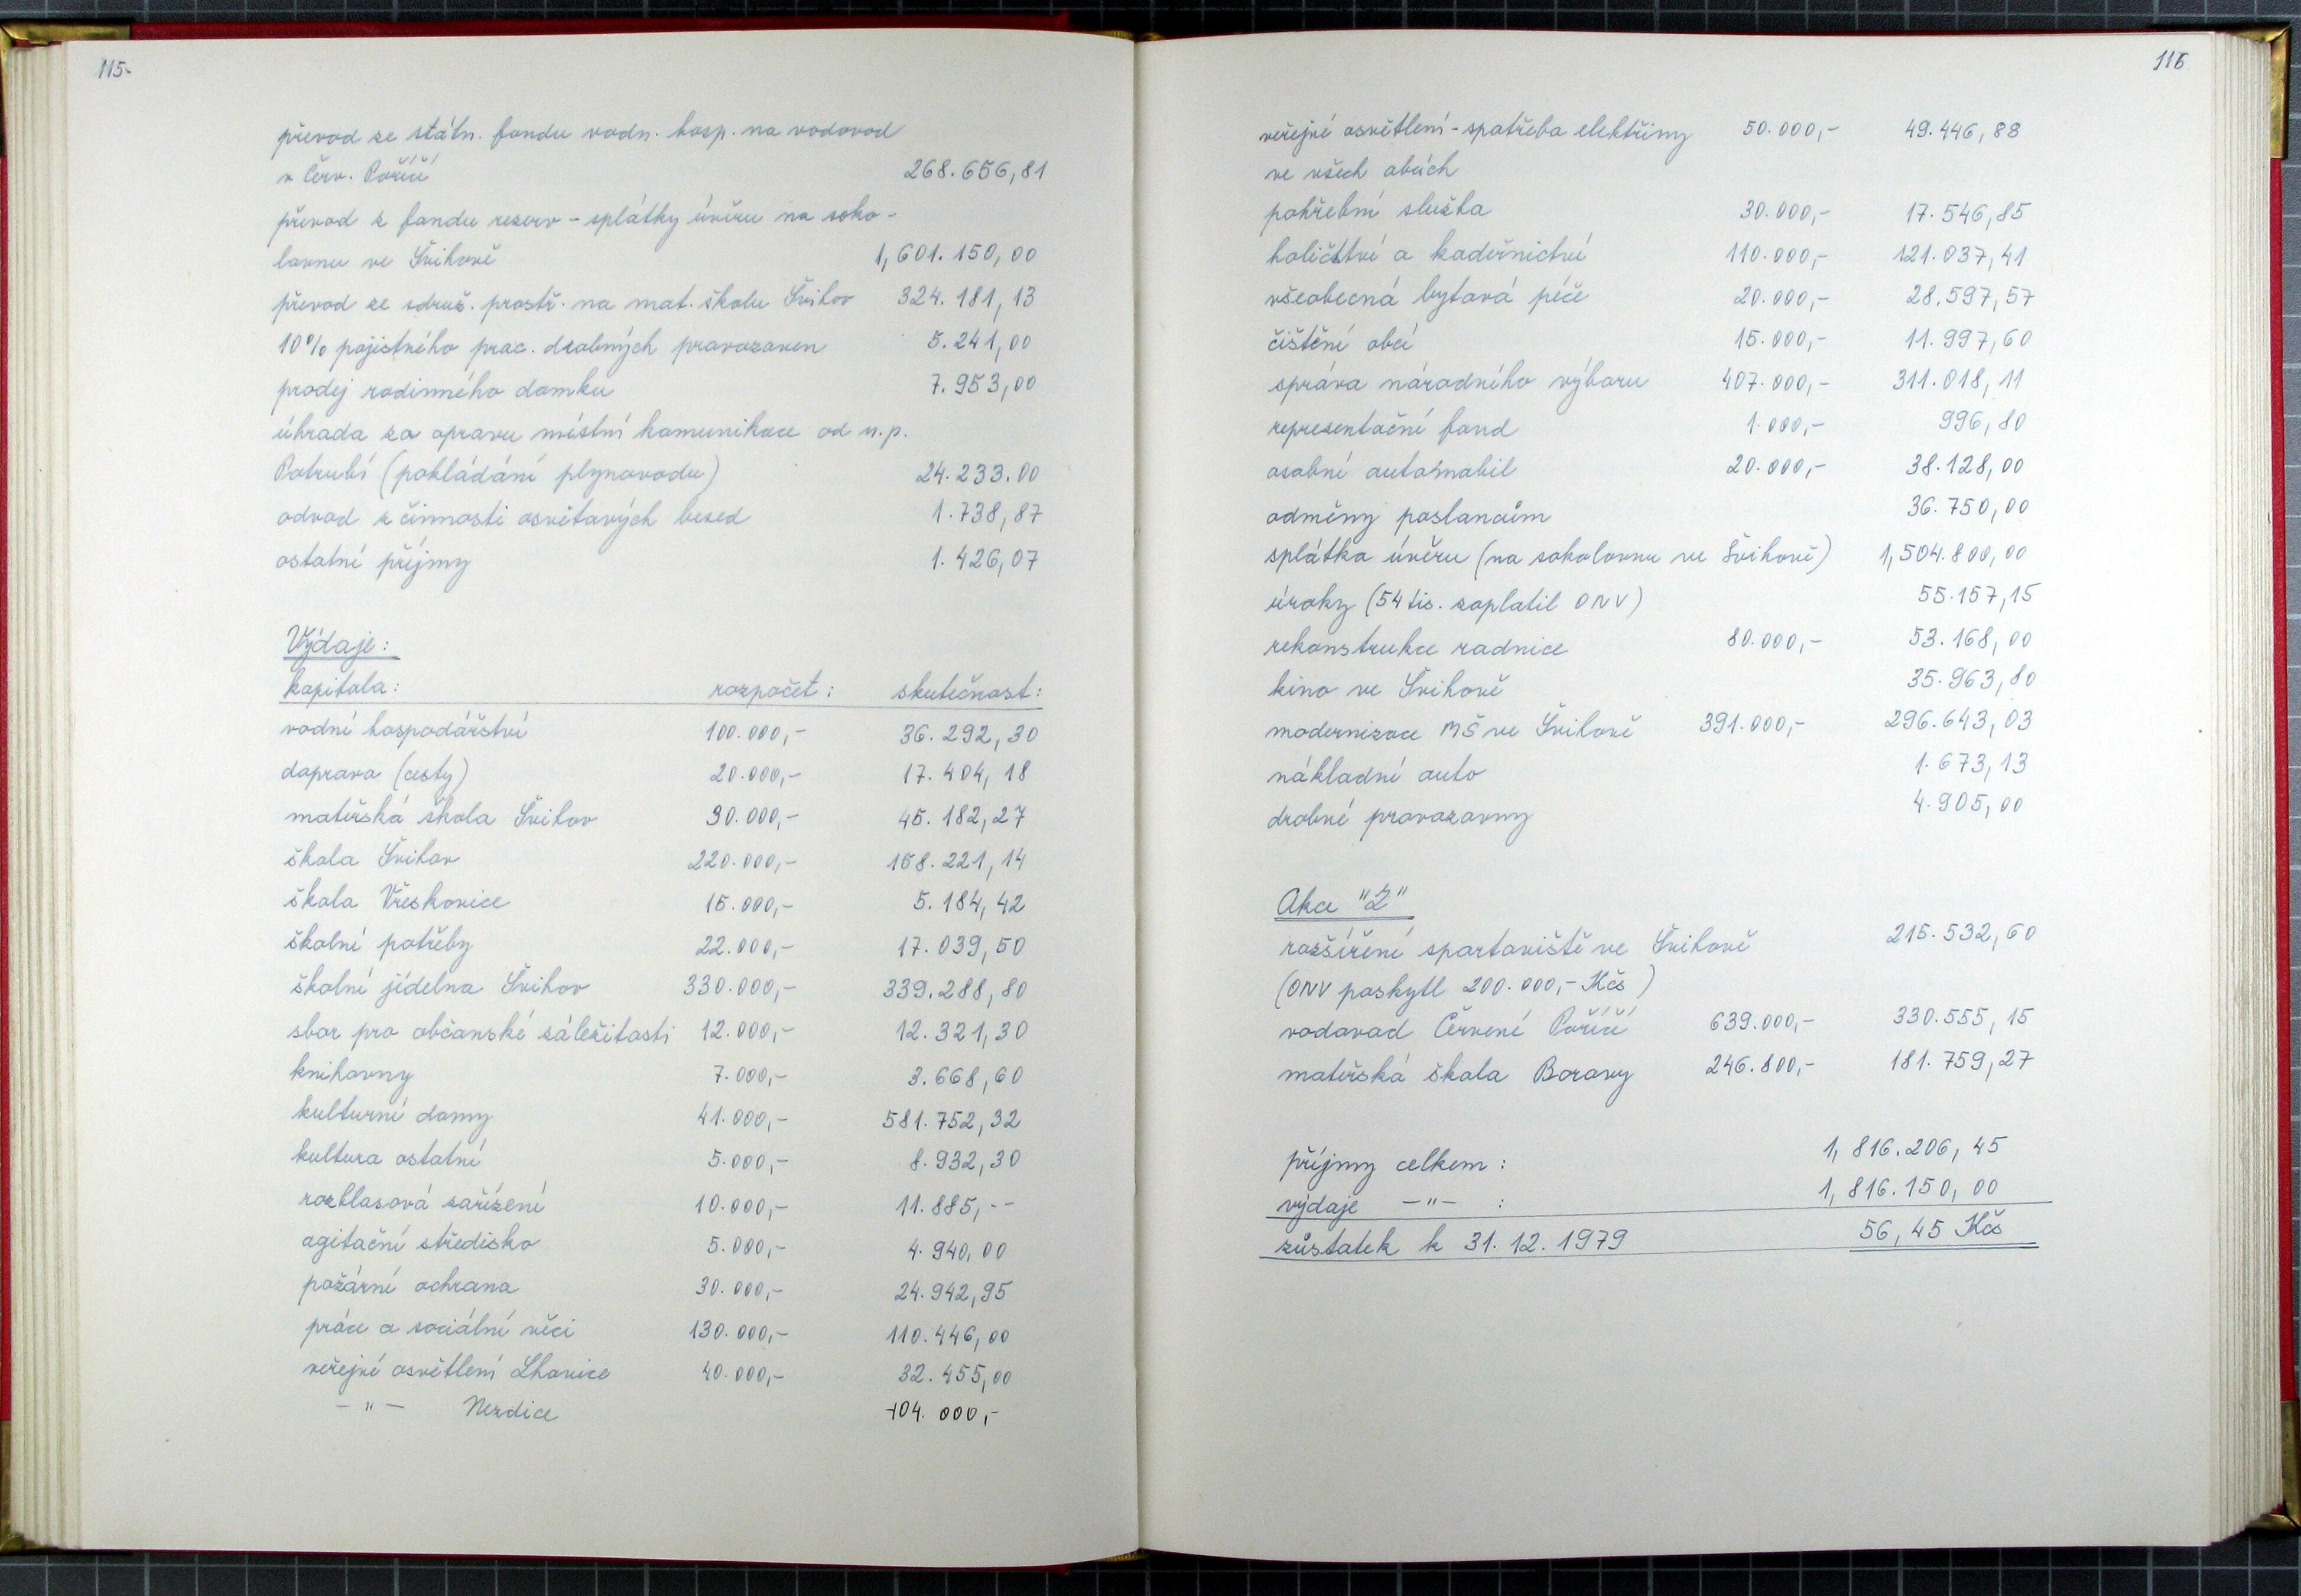 115.
převod ze státn. fondu vodn. hosp. na vodovod
v Červ. Poříčí 268.656,81
převod z fondu rezerv - splátky úvěru na soko-
lovnu ve Švihově 1,601.150,00
převod ze sdruž. prostř. na mat. školu Švihov 324.181,13
10% pojistného prac. drobných provozoven 5.241,00
prodej rodinného domku 7.953,00
úhrada za opravu místní komunikace od n.p.
Potrubí (pokládání plynovodu) 24.233.00
odvod z činnosti osvětových besed 1.738,87
ostatní příjmy 1.426,07
Výdaje:
kapitola: rozpočet: skutečnost:
vodní hospodářství 100.000,- 36.292,30
doprava (cesty) 20.000,- 17.404,18
mateřská škola Švihov 30.000,- 45.182,27
škola Švihov 220.000,- 168.221,14
škola Vřeskovice 15.000,- 5.184,42
školní potřeby 22.000,- 17.039,50
školní jídelna Švihov 330.000,- 339.288,80
sbor pro občanské záležitosti 12.000,- 12.321,30
knihovny 7.000,- 3.668,60
kulturní domy 41.000,- 581.752,32
kultura ostatní 5.000,- 8.932,30
rozhlasová zařízení 10.000,- 11.885,--
agitační středisko 5.000,- 4.940,00
požární ochrana 30.000,- 24.942,95
práce a sociální věci 130.000,- 110.446,00
veřejné osvětlení Lhovice 40.000,- 32.455,00
-"- Nezdice 104.000,-
116
veřejné osvětlení - spotřeba elektřiny 50.000,- 49.446,88
ve všech obcích
pohřební služba 30.000,- 17.546,85
holičství a kadeřnictví 110.000,- 121.037,41
všeobecná bytová péče 20.000,- 28.597,57
čištění obcí 15.000,- 11.997,60
správa národního výboru 407.000,- 311.018,11
representační fond 1.000,- 996,80
osobní automobil 20.000,- 38.128,00
odměny poslancům 36.750,00
splátka úvěru (na sokolovnu ve Švihově) 1,504.800,00
úroky (54 tis. zaplatil ONV) 55.157,15
rekonstrukce radnice 80.000,- 53.168,00
kino ve Švihově 35.963,80
modernizace MŠ ve Švihově 391.000,- 296.643,03
nákladní auto 1.673,13
drobné provozovny 4.905,00
Akce "Z"
rozšíření sportoviště ve Švihově 215.532,60
(ONV poskytl 200.000,- Kčs)
vodovod Červené Poříčí 639.000,- 330.555,15
mateřská škola Borovy 246.800,- 181.759,27
příjmy celkem: 1,816.206,45
výdaje -"- : 1,816.150,00
zůstatek k 31.12.1979 56,45 Kčs